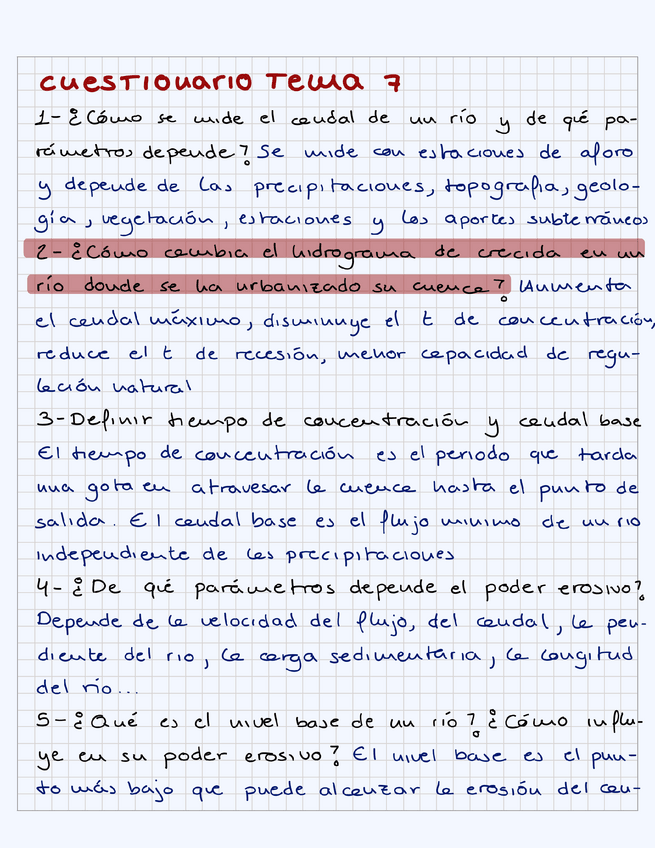 CUESTIONARIO TEMA 7
1- ¿Cómo se mide el caudal de un río y de qué pa-
rámetros depende? Se mide con estaciones de aforo
y depende de las precipitaciones, topografia, geolo-
gía, vegetación, estaciones y los aportes subterráneos
2- ¿Cómo cambia el hidrograma de crecida en un
río donde se ha urbanizado su cuenca? Aumenta
el caudal máximo, disminuye el t de concentración,
reduce el t de recesión, menor capacidad de regu-
lación natural
3- Definir tiempo de concentración y caudal base
El tiempo de concentración es el periodo que tarda
una gota en atravesar la cuenca hasta el punto de
salida. El caudal base es el flujo minimo de un rio
independiente de las precipitaciones
4- ¿De qué parámetros depende el poder erosivo?
Depende de la velocidad del flujo, del caudal, la pen-
diente del rio, la carga sedimentaria, la longitud
del río...
5- ¿Qué es el nivel base de un río? ¿Cómo influ-
ye en su poder erosivo? El nivel base es el pun-
to más bajo que puede alcanzar la erosión del cau-